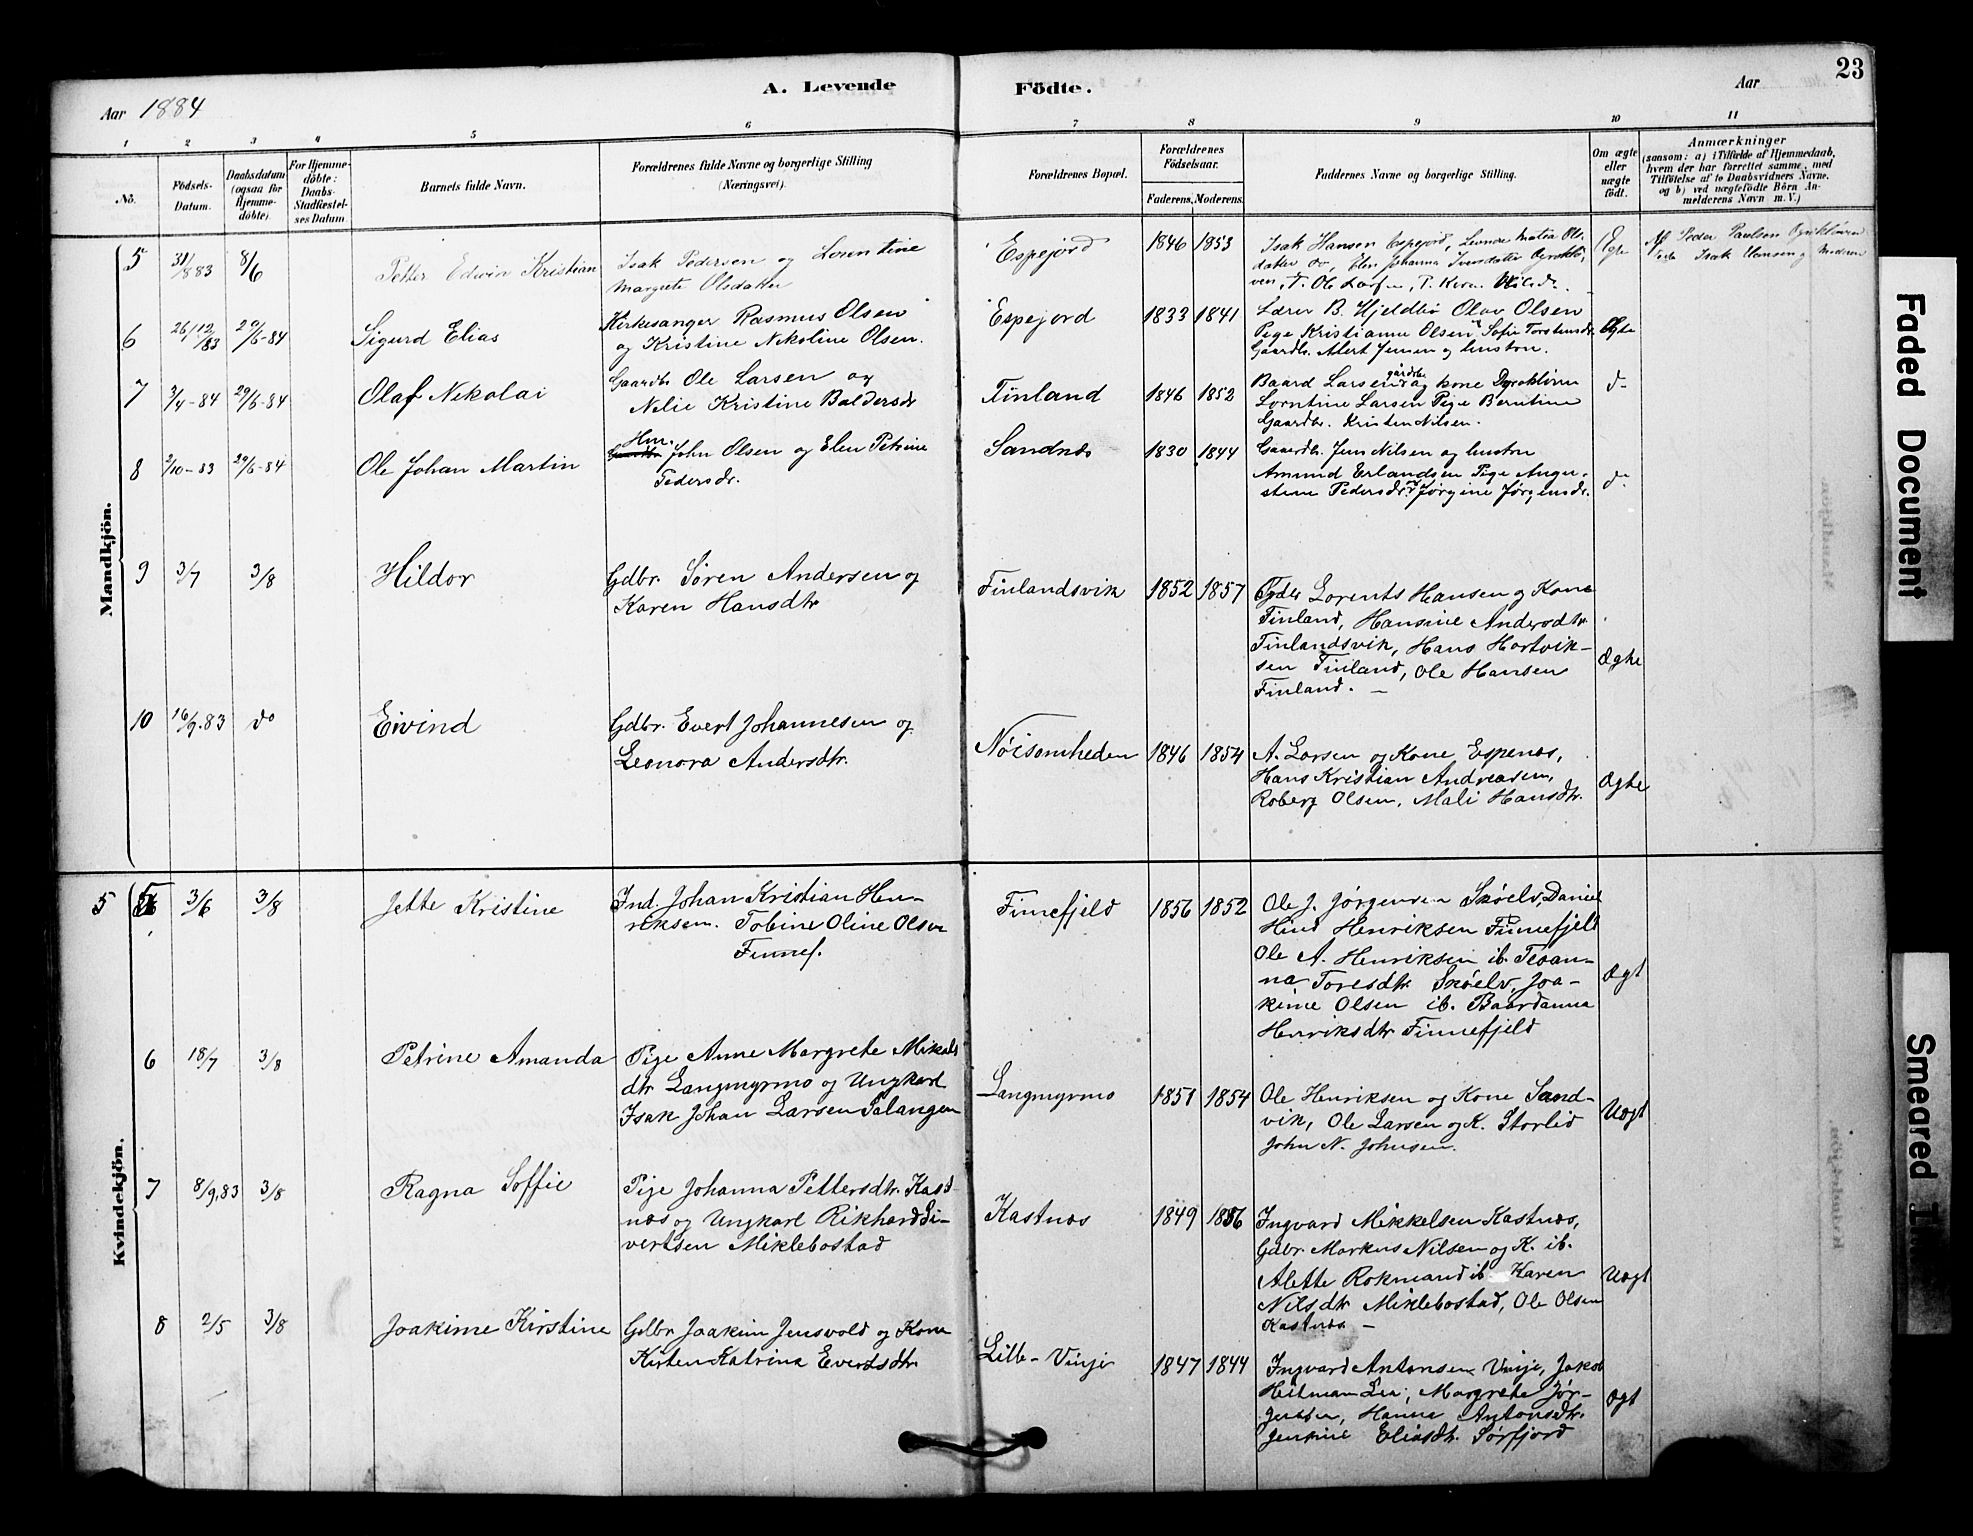 23
A. Levende
Födte.
Aar
Aar 1884
1 2 3 4 5 6 7 8 9 10 11
Nö.
Födsels-Datum.
Daabsdatum (ogsaa for Hjemme-döbte).
For Hjemme-döbte: Daabs-Stadfæstel-ses Datum.
Barnets fulde Navn.
Forældrenes fulde Navne og borgerlige Stilling
(Næringsvei).
Forældrenes Bopæl.
Forældrenes Födselsaar.
Faderens. Moderens.
Faddernes Navne og borgerlige Stilling.
Om ægte eller uægte födt.
Anmærkninger
(saasom: a) i Tilfælde af Hjemmedaab,
hvem der har forrettet samme, med
Tilföielse af to Daabsvidners Navne,
og b) ved uægtefödte Börn An-
melderens Navn m. V.)
Mandkjön.
5 31/8 83 8/6 Petter Edvin Kristian
Isak Pedersen og Lorentine
Margrete Olsdatter
Espejord 1846 1853
Isak Hansen Espejord,
datter
Ægte
Af Peder Paulsen
Isak Hansen og
6 26/12/83 29/6-84 Sigurd Elias
Kirkesanger Rasmus Olsen
og Kristine Nikoline Olsen.
Espejord 1833 1841
Lærer B. Hjeldbö Olav Olsen
Pige Kristianne Olsen Sofie Torstensdr
Gaardbr. Albert Jensen og hustru.
Ægte
7 3/4-84 29/6-84 Olaf Nikolai
Gaardbr Ole Larsen og
Nelie Kristine Baldersdr
Finland 1846 1852
Baard Larsen gårdbr og kone Dyrokløven
Lorntine Larsen Pige Berntine
Gaardbr. Kristen Nilsen.
do
8 2/10-83 29/6-84 Ole Johan Martin
Hm. John Olsen og Elen Petrine
Pedersdr.
Sandnæs 1830 1844
Gaardbr. Jens Nilsen og hustru
Amund Erlandsen Pige Augu-
stine Pedersdr. og Jørgine Jørgensdr.
do
9 3/7 3/8 Hildor
Gdbr. Sören Andersen og
Karen Hansdtr
Finlandsvik 1852 1857
Lorents Hansen og Kone
Finland, Hansine Andersdtr
Finlandsvik, Hans Hartvik-
sen Finland, Ole Hansen
Finland. —
Ægte
10 16/9.83 do Eivind
Gdbr. Evert Johannesen og
Leonora Andersdtr.
Nöisomheden 1846 1854
A. Larsen og Kone Espenæs,
Hans Kristian Andreasen,
Roberg Olsen, Mali Hansdtr.
Ægte
Kvindekjön.
5 5 3/6 3/8 Jette Kristine
Ind. Johan Kristian Hen-
riksen. Tobine Oline Olsen
Finnef.
Finnefjeld 1856 1852
Ole J. Jörgensen Sköelv, Daniel
Hind Henriksen Finnefjeld
Ole A. Henriksen ib.
na Toresdtr Sköelv, Joa-
kime Olsen ib. Baardanna
Henriksdtr Finnefjeld
Ægt
6 18/7 3/8 Petrine Amanda
Pige Anne Margrete Mikals
dtr Langmyrmo og Ungkarl
Isak Johan Larsen Salangen
Langmyrmo 1851 1854
Ole Henriksen og Kone Sand-
vik, Ole Larsen og K. Storlid
John N. Johnsen.
Uægt
7 8/9.83 3/8 Ragna Soffie
Pige Johanna Pettersdtr. Kast-
næs og Ungkarl Rikhard Si-
vertsen Miklebostad
Kastnæs 1849 1856
Ingvard Mikkelsen Kastnæs,
Gdbr. Markus Nilsen og K. ib.
Alette Rokmand ib. Karen
Nilsdtr Miklebostad, Ole Olsen
Kastnæs —
Uægt
8 2/5 3/8 Joakime Kirstine
Gdbr Joakim Jensvold og Kone
Kirsten Katrina Evertsdtr
Lille-Vinje 1847 1844
Ingvard Antonsen Vinje, Jakob
Heitman Lia, Margrete Jör-
gensen, Hanna Antonsdtr.
Jensine Eliasdtr. Sörfjord
Ægt
Faded Document
Smeared